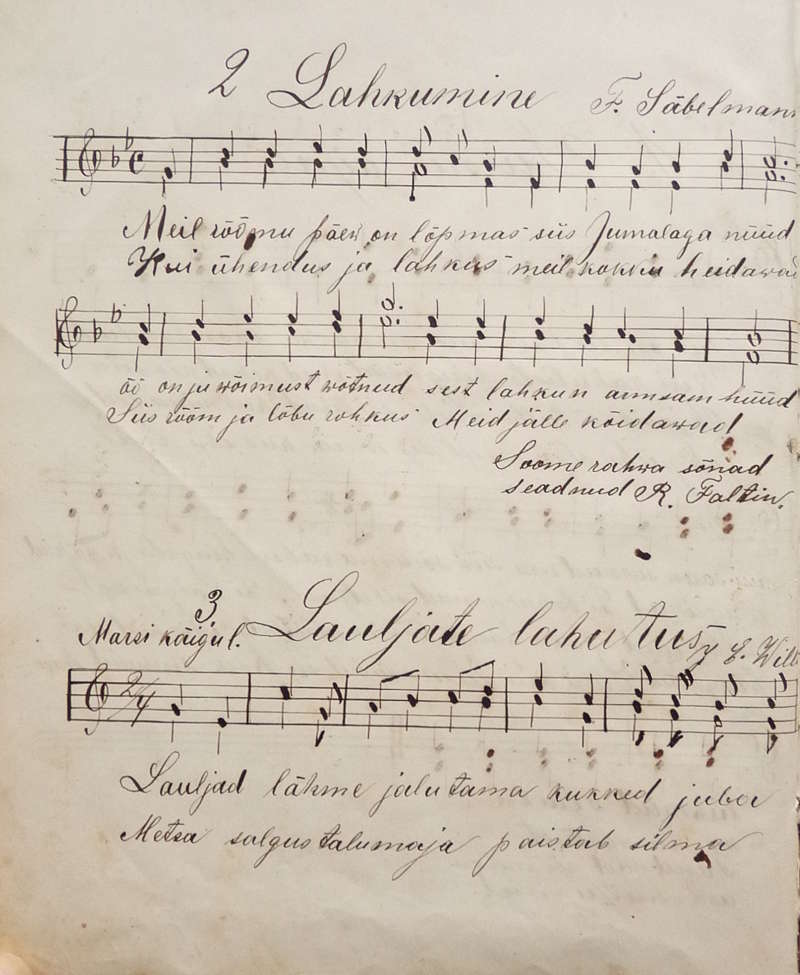 2 Lahkumine F. Säbelmann
Meil rõõmu päew on lõpmas siis Jumalaga nüüd
Kui ühendus ja lahkus meil kokku heidawad
öö on ju wõimust wõtnud sest lahkun armsam hüüd
Siis rõõm ja lõbu rohkus Meid jälle köidawad
Soome rahwa sõnad
seadnud R. Faltin.
3.
Marsi käigul. Lauljate lahutus
2/4
Lauljad lähme jalutama kukked juba
Metsa salgus talumaja paistab silma